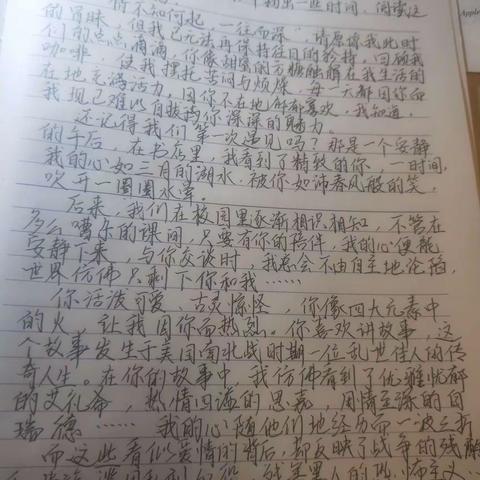 抽出一些时间,阅读这
情不知何起,一往而深",请原谅我此时
的冒昧,但我已无法再保持往日的矜持,回顾我
们的点点滴滴,你像甜蜜的方糖融消在我生活的
咖啡,使我摆托苦闷与烦燥,每一天都因你而
在地充满活力,因你不在地所郁喜欢,我知道,
我现已难以自拔均你深深的魅力。
还记得我们第一次遇见吗?那是一个安静
的午后,在书店里,我看到了精致的你,一时间,
我的心如三月的湖水,被你如沛春风般的笑,
吹开一圈圈水晕。
后来,我们在校园里逐渐相识相知,不管在
多么嘈杂的课间,只要有你的陪伴,我的心便能
安静下来,与你交谈时,我总会不由自主地沦陷,
世界仿佛只剩下你和我……
你活泼可爱,古灵惊怪,你像四大元素中
的火,让我因你而热烈。你喜欢讲故事,这
个故事发生于美国南北战时期一位乱世佳人的传
奇人生。在你的故事中,我仿佛看到了优雅忧郁
的艾礼希,热情四溢的思嘉,用情至深的白
瑞德……我的心随他们地经历而一波三折
而这些看似爱情的背后,却反映了战争的残酷